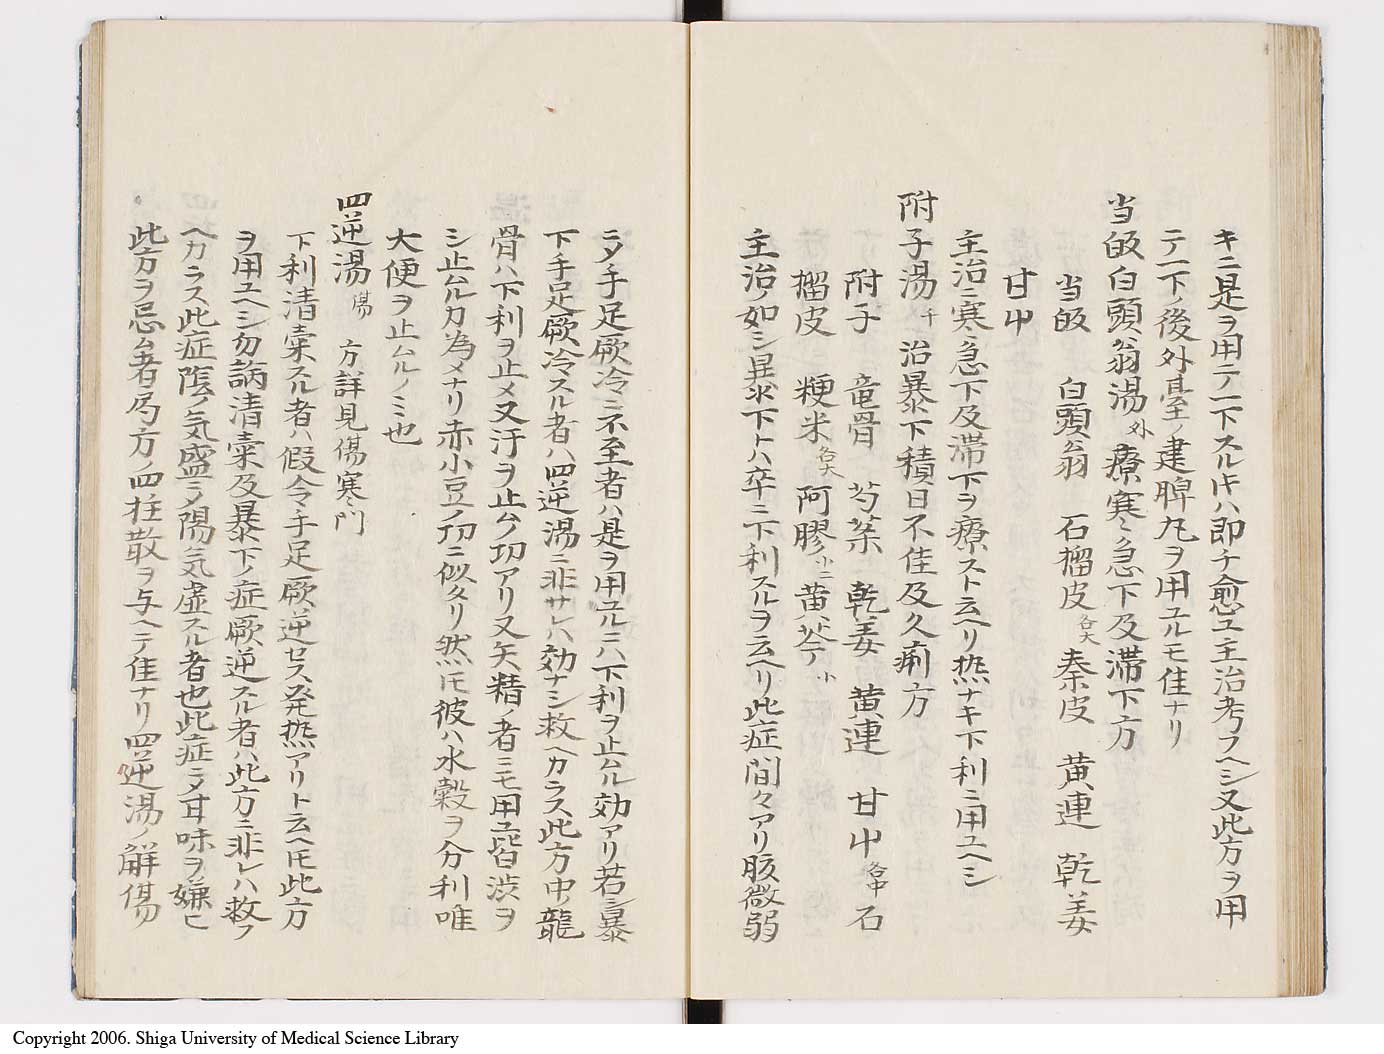 キニ是ヲ用テ一下スル𪜈ハ即チ愈ユ主治考フヘシ又此方ヲ用
テ一下ノ後外臺ノ建脾丸ヲ用ユルモ佳ナリ
当皈白頭翁湯 外 療寒急下及滞下方
当皈 白頭翁 石榴皮 各大 秦皮 黄連 乾姜
甘屮
主治ニ寒急下及滞下ヲ療スト云ヘリ热ナキ下利ニ用ユヘシ
附子湯 千 治暴下積日不住及久痢方
附子 竜骨 芍薬 乾姜 黄連 甘屮 各中 石
榴皮 粳米 各大 阿膠 小二 黄芩 小
主治ノ如シ暴下トハ卒ニ下利スルヲ云ヘリ此症間々アリ脉微弱
ニ〆手足厥冷ニ不至者ハ是ヲ用ユルニハ下利ヲ止ムル効アリ若シ暴
下手足厥冷スル者ハ四逆湯ニ非サレハ効ナシ救ヘカラス此方中ノ龍
骨ハ下利ヲ止メ又汗ヲ止ムク㓛アリ又失精ノ者ニモ用ユ皆渋ヲ
シ止ムルカ為メナリ赤小豆ノ㓛ニ似タリ然𪜈彼ハ水穀ヲ分利唯
大便ヲ止ムルノミ也
四逆湯 傷 方詳見傷寒門
下利清槖スル者ハ假令手足厥逆セス発热アリト云ヘ𪜈此方
ヲ用ユヘシ勿論清槖及暴下ノ症厥逆スル者ハ此方ニ非レハ救フ
ヘカラス此症陰ノ気盛ニ〆陽気虚スル者也此症ニ〆甘味ヲ嫌ヒ
此方ヲ忌ム者局方ノ四柱散ヲ与ヘテ佳ナリ四逆湯ノ觧傷
Copyright 2006. Shiga University of Medical Science Library